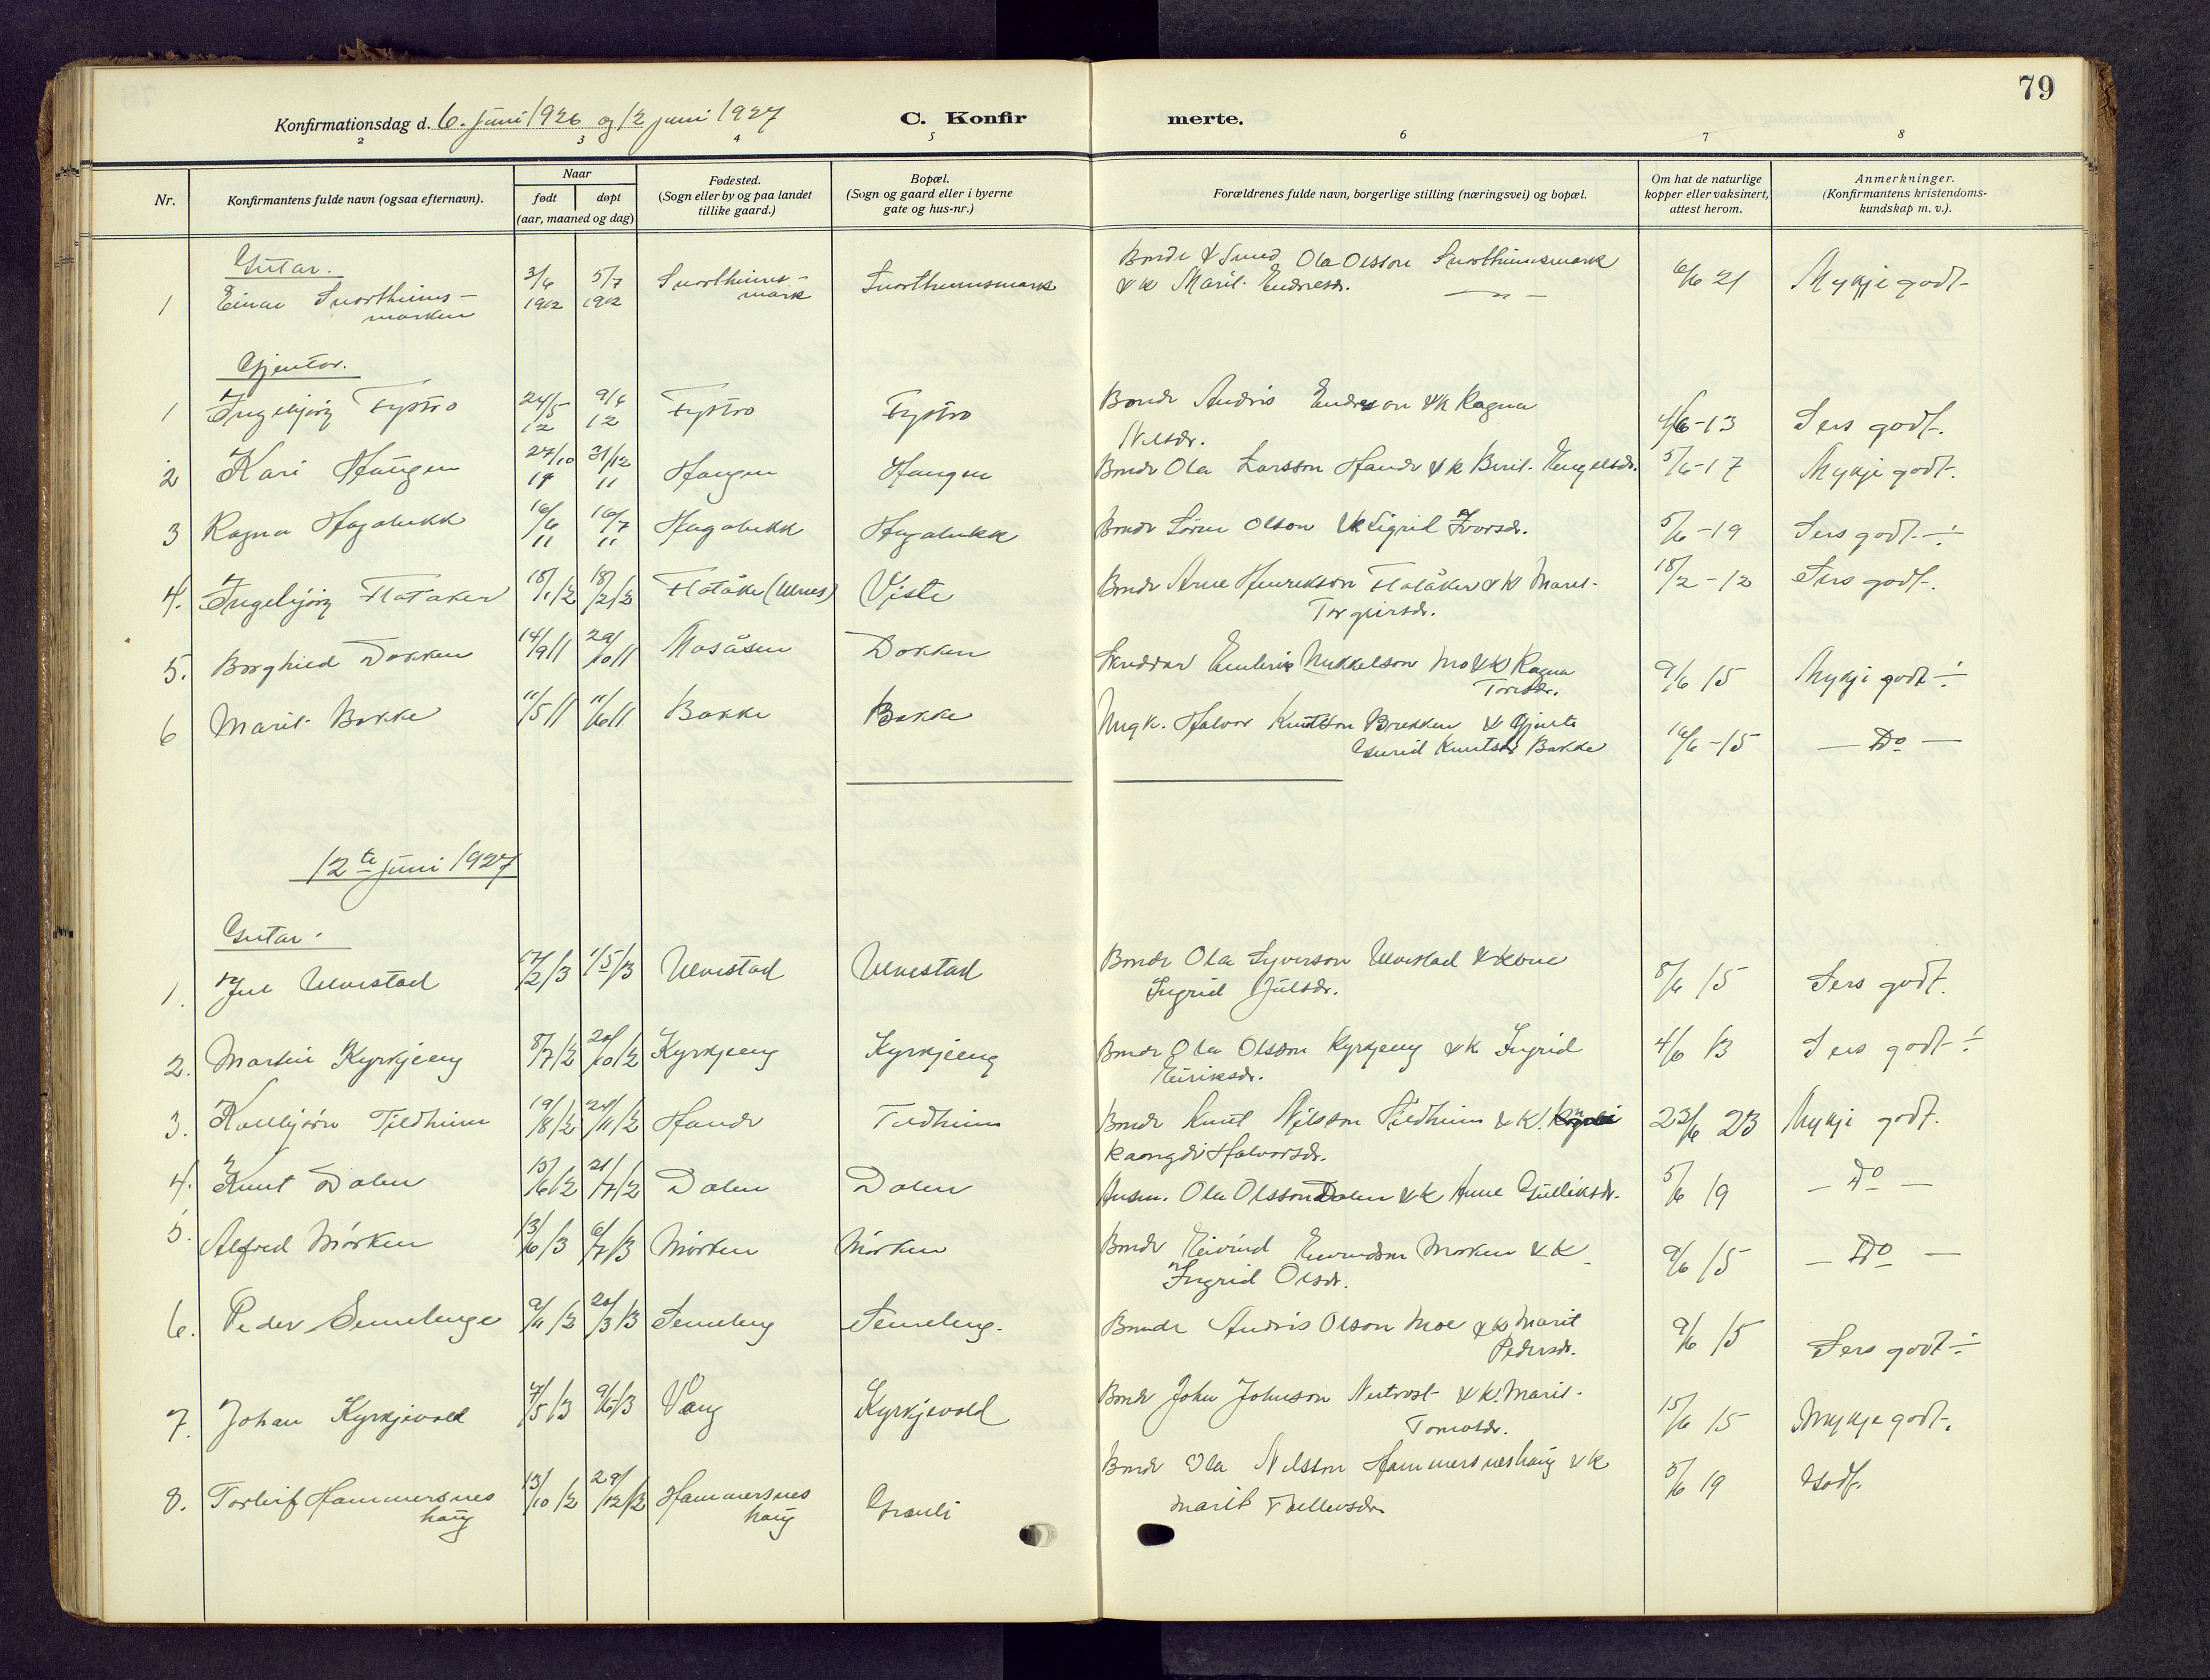 79
Konfirmationsdag d. 6. juni 1926 og 12 juni 1927
C. Konfirmerte.
2 3 4 5 6 7 8
Nr.
Konfirmantens fulde navn (ogsaa efternavn).
Naar
født døpt
(aar, maaned og dag)
Fødested.
(Sogn eller by og paa landet
tillike gaard.)
Bopæl.
(Sogn og gaard eller i byerne
gate og hus-nr.)
Forældrenes fulde navn, borgerlige stilling (næringsvei) og bopæl.
Om hat de naturlige
kopper eller vaksinert,
attest herom.
Anmerkninger.
(Konfirmantens kristendoms-
kundskap m. v.).
Gutar.
1 Einar 3/6 1912 5/7 1912 Bonde & Ola Olsson
& k Marit Endresdr. 6/6 21 Mykje godt
Gjentor.
1 Ingebjørg Fystro 24/5 12 9/6 12 Fystro Fystro Bonde Andris Endreson & k Ragna
Nilsdr. 4/6-13 Sers godt.
2 Kari Haugen 27/10 11 31/12 11 Haugen Haugen Bonde Ola Larsson & k Berit Engelsdr. 5/6-17 Mykje godt.
3 Ragna Hagabukk 16/6 11 16/7 11 Hagabukk Hagabukk Bonde Søren Olson & k Sigrid Ivorsdr. 5/6-19 Sers godt ÷
4. Ingebjørg Flatåker 18/1 12 18/2 12 Flatåker (Ulnes) Viste Bonde Arne Henrikson Flatåker & k Marit
Torgeirsdr. 18/2-12 Sers godt.
5. Borghild Dokken 14/9 11 29/10 11 Mosåsen Dokken Mikkelson Mo & k Ragna
9/6 15 Mykje godt ÷
6 Marit Bakke 11/5 11 11/6 11 Bakke Bakke Ungk. Halvor Knutson Brekken & Gjente
Gurid Knutsdr Bakke 16/6-15 — Do —
12te juni 1927
Gutar.
1. Jul Ulvestad 17/2 13 1/5 13 Ulvestad Ulvestad Bonde Ola Syverson Ulvestad & kone
Ingrid Julsdr. 8/6 15 Sers godt.
2. Martin Kyrkjeeng 8/7 12 20/10 12 Kyrkjeeng Kyrkjeeng Bonde Ola Olsson Kyrkjeng & k Ingrid
Eiriksdr. 4/6 13 Sers godt ÷
3. Kolbjørn Tildheim 19/8 12 24/11 12 Tildheim Bonde Knut Nilsson Tildheim & k.
Halvorsdr. 23/6 23 Mykje godt.
4. Knut Dalen 15/6 12 21/7 12 Dalen Dalen Husm. Ola Olsson Dalen & k Anne Gulliksdr. 5/6 19 — Do —
5. Alfred Mörken 13/6 13 6/7 13 Mörken Mörken Bonde Eivind Eivindson Mörken & k
Ingrid Olsdr. 9/6 15 — Do —
6. Peder Semelenge 20/3 13 Semeleng Semeleng. Bonde Andris Olson Moe & k Marit
Pedersdr. 9/6 15 Sers godt ÷
7. Johan Kyrkjevold 7/5 13 9/6 13 Vang Kyrkjevold Bonde John Johnson & k. Marit
Tomosdr. 15/6 15 Mykje godt.
8. Torleif Hammersnes
haug 13/10 12 29/12 12 Hammersnes
haug Grauli Bonde Ola Nilsson Hammersneshaug & k
Marit Tollevsdr. 5/6 19 Godt.